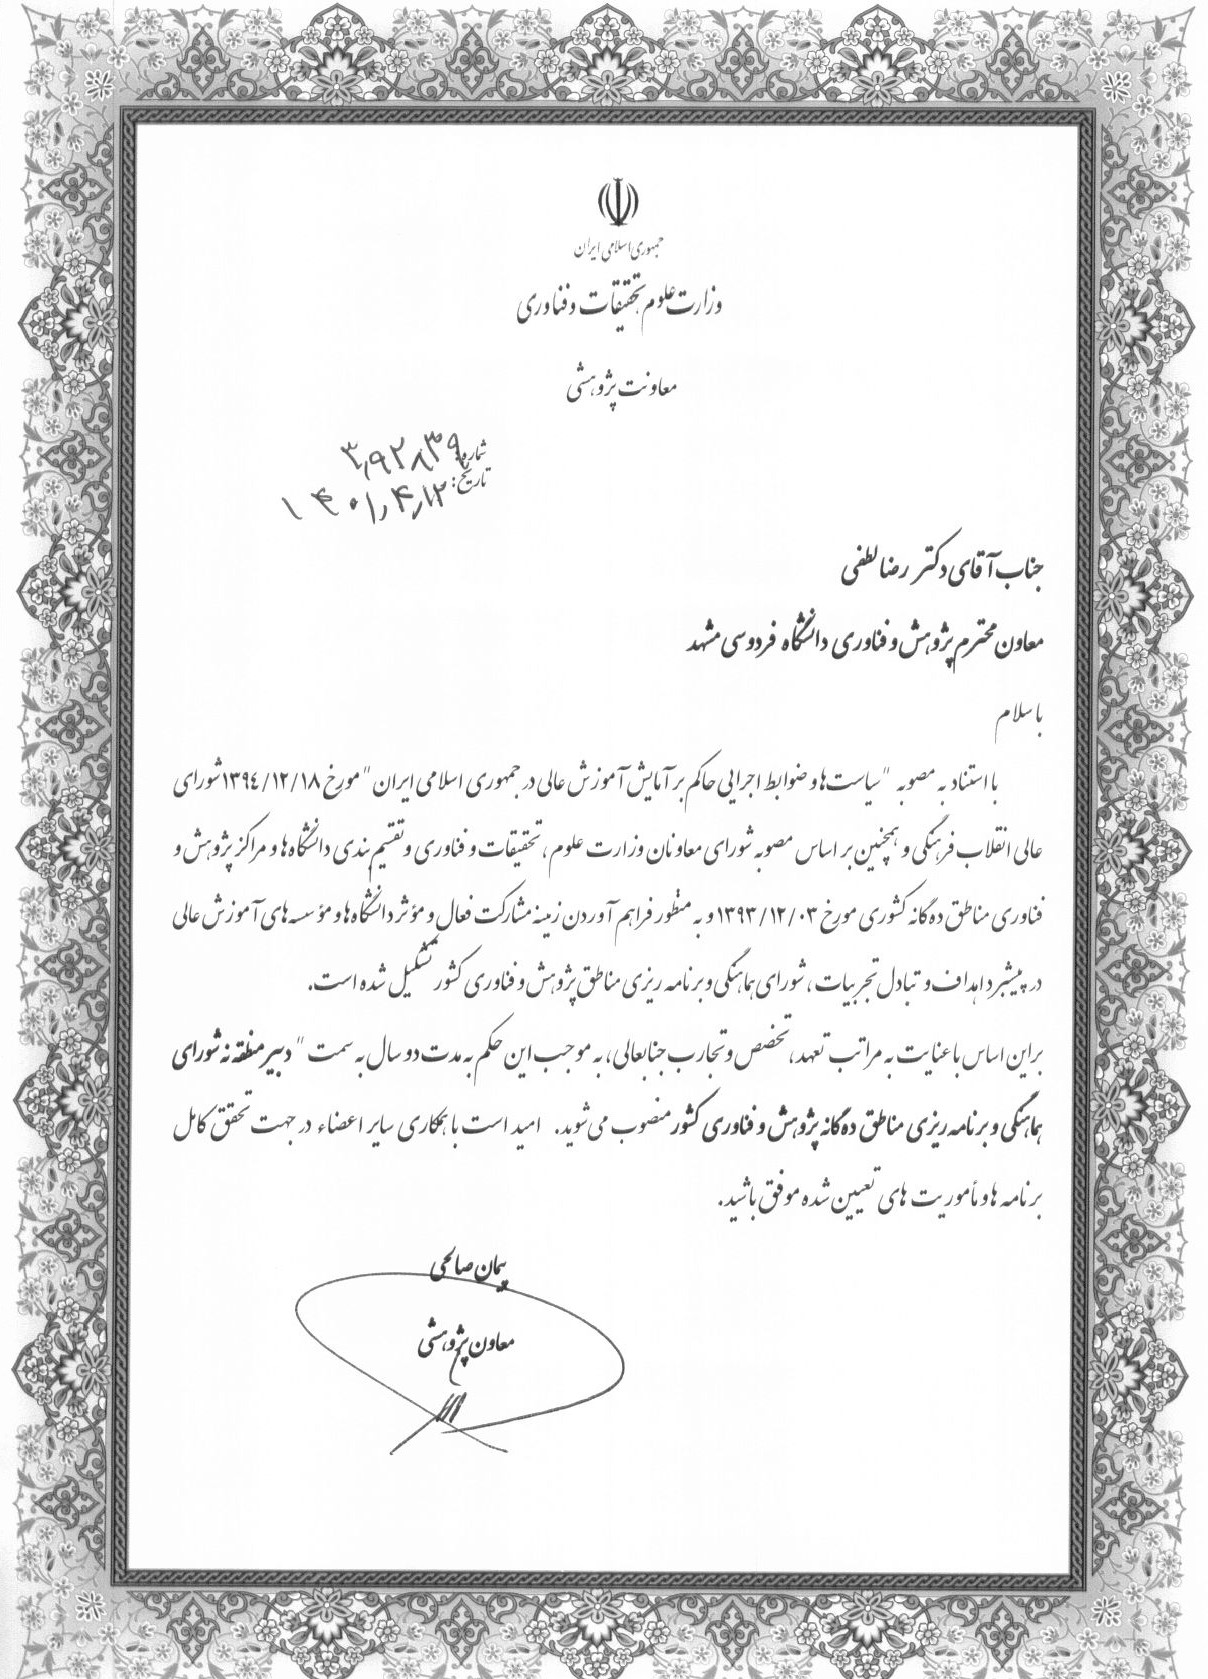 جمهوری اسلامی ایران
وزارت علوم تحقیقات و فناوری
معاونت پژوهشی
شماره:
تاریخ: ۱۴۰۱٫۴٫۱۲
جناب آقای دکتر رضا لطفی
معاون محترم پژوهش و فناوری دانشگاه فردوسی مشهد
با سلام
با استناد به مصوبه "سیاست‌ها و ضوابط اجرایی حاکم بر آمایش آموزش عالی در جمهوری اسلامی ایران" مورخ ۱۳۹٤/۱۲/۱۸ شورای
عالی انقلاب فرهنگی و همچنین بر اساس مصوبه شورای معاونان وزارت علوم، تحقیقات و فناوری و تقسیم بندی دانشگاه‌ها و مراکز پژوهش و
فناوری مناطق ده گانه کشوری مورخ ۱۳۹۳/۱۲/۰۳ و به منظور فراهم آوردن زمینه مشارکت فعال و مؤثر دانشگاه‌ها و مؤسسه‌های آموزش عالی
در پیشبرد اهداف و تبادل تجربیات، شورای هماهنگی و برنامه ریزی مناطق پژوهش و فناوری کشور تشکیل شده است.
براین اساس با عنایت به مراتب تعهد، تخصص و تجارب جنابعالی، به موجب این حکم به مدت دو سال به سمت " دبیر منطقه نه شورای
هماهنگی و برنامه ریزی مناطق ده گانه پژوهش و فناوری کشور منصوب می‌شوید. امید است با همکاری سایر اعضاء در جهت تحقق کامل
برنامه ها و مأموریت های تعیین شده موفق باشید.
پیمان صالحی
معاون پژوهشی